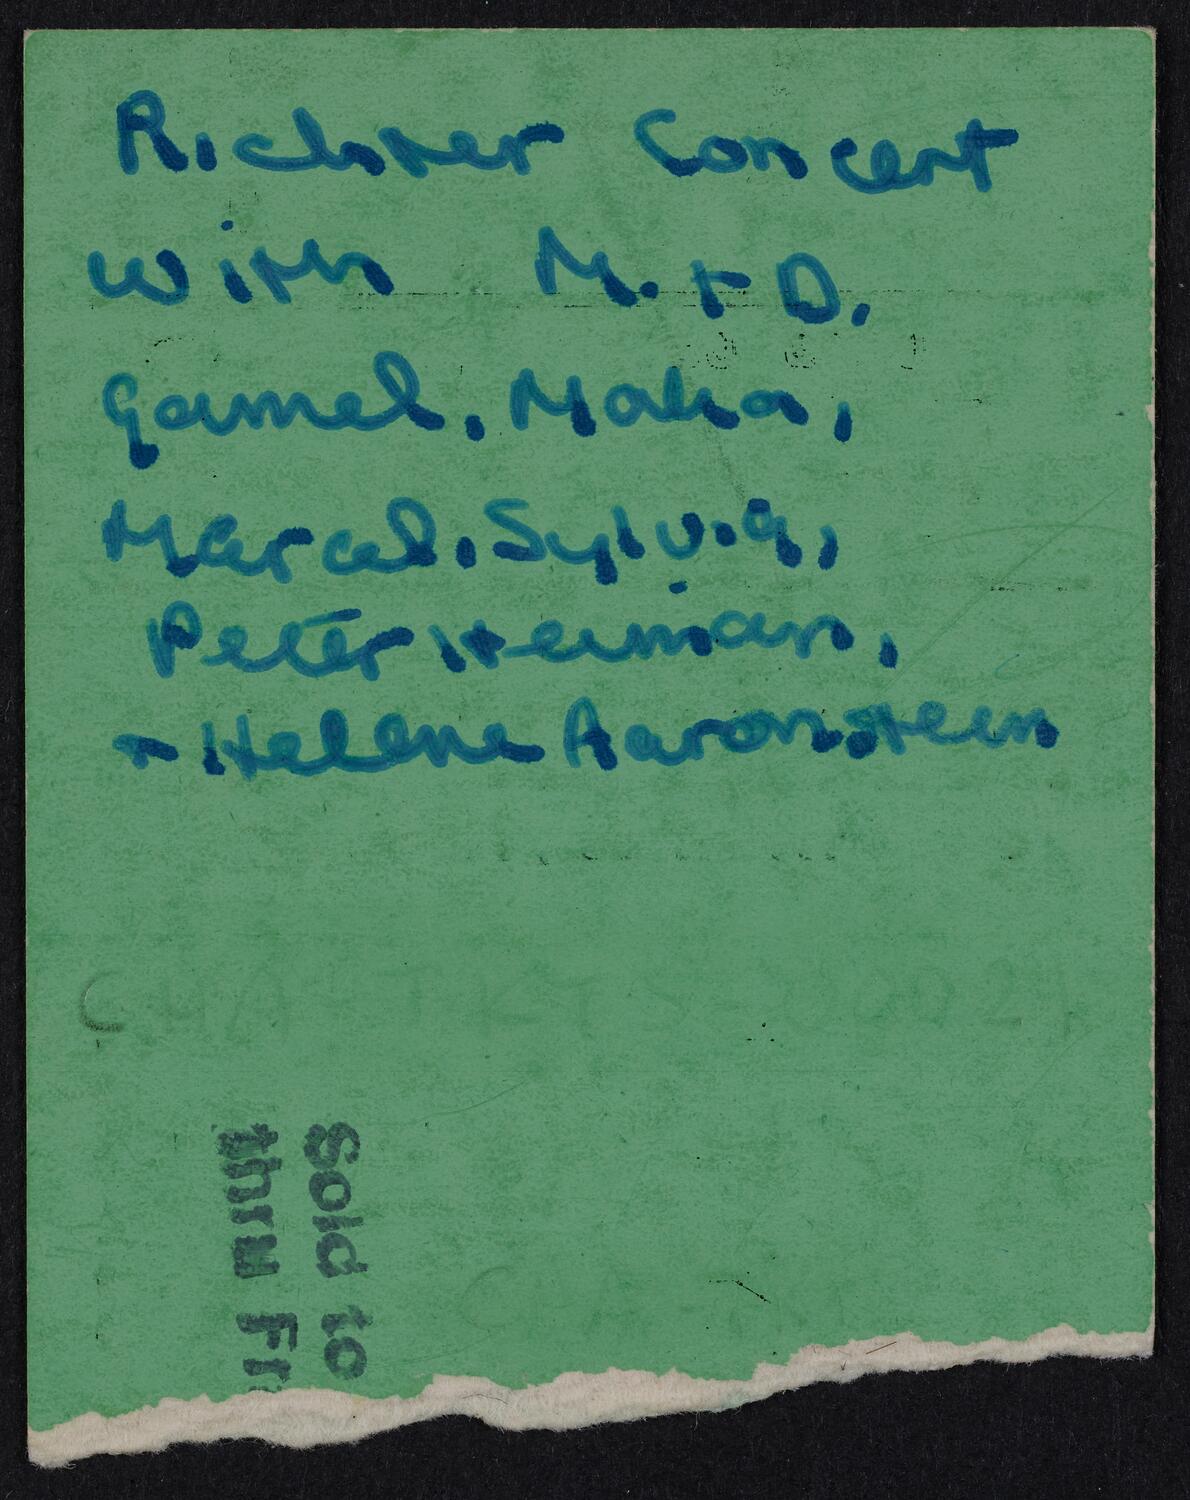 Richter Concert
with M. + D.
Gamel, Maha,
Marcel, Sylvia,
Peter Heiman,
+ Helene Aaronstein
Sold to
thru